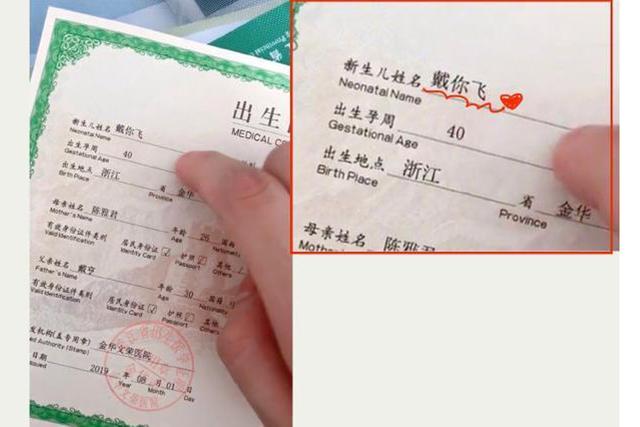 出生
MEDICAL C
新生儿姓名 戴你飞
Neonatal Name
出生孕周 40
Gestational Age
出生地点 浙江 省 金华
Birth Place Province
母亲姓名 陈雅君 年龄 26 国籍
Mother's Name Age Nationality
有效身份证件类别 居民身份证 护照 其他
Valid Identification Identity Card Passport Others
父亲姓名 戴亨 年龄 30 国籍
Father's Name Age
有效身份证件类别 居民身份证 护照 其他
Valid Identification Identity Card Passport Others
发机构(盖专用章) 金华文荣医院
Authority (Stamp)
日期 2019 年 08 月 01 日
Issued Year Month Day
新生儿姓名 戴你飞
Neonatal Name
出生孕周 40
Gestational Age
出生地点 浙江 省 金华
Birth Place Province
母亲姓名 陈雅君
Mother's Name